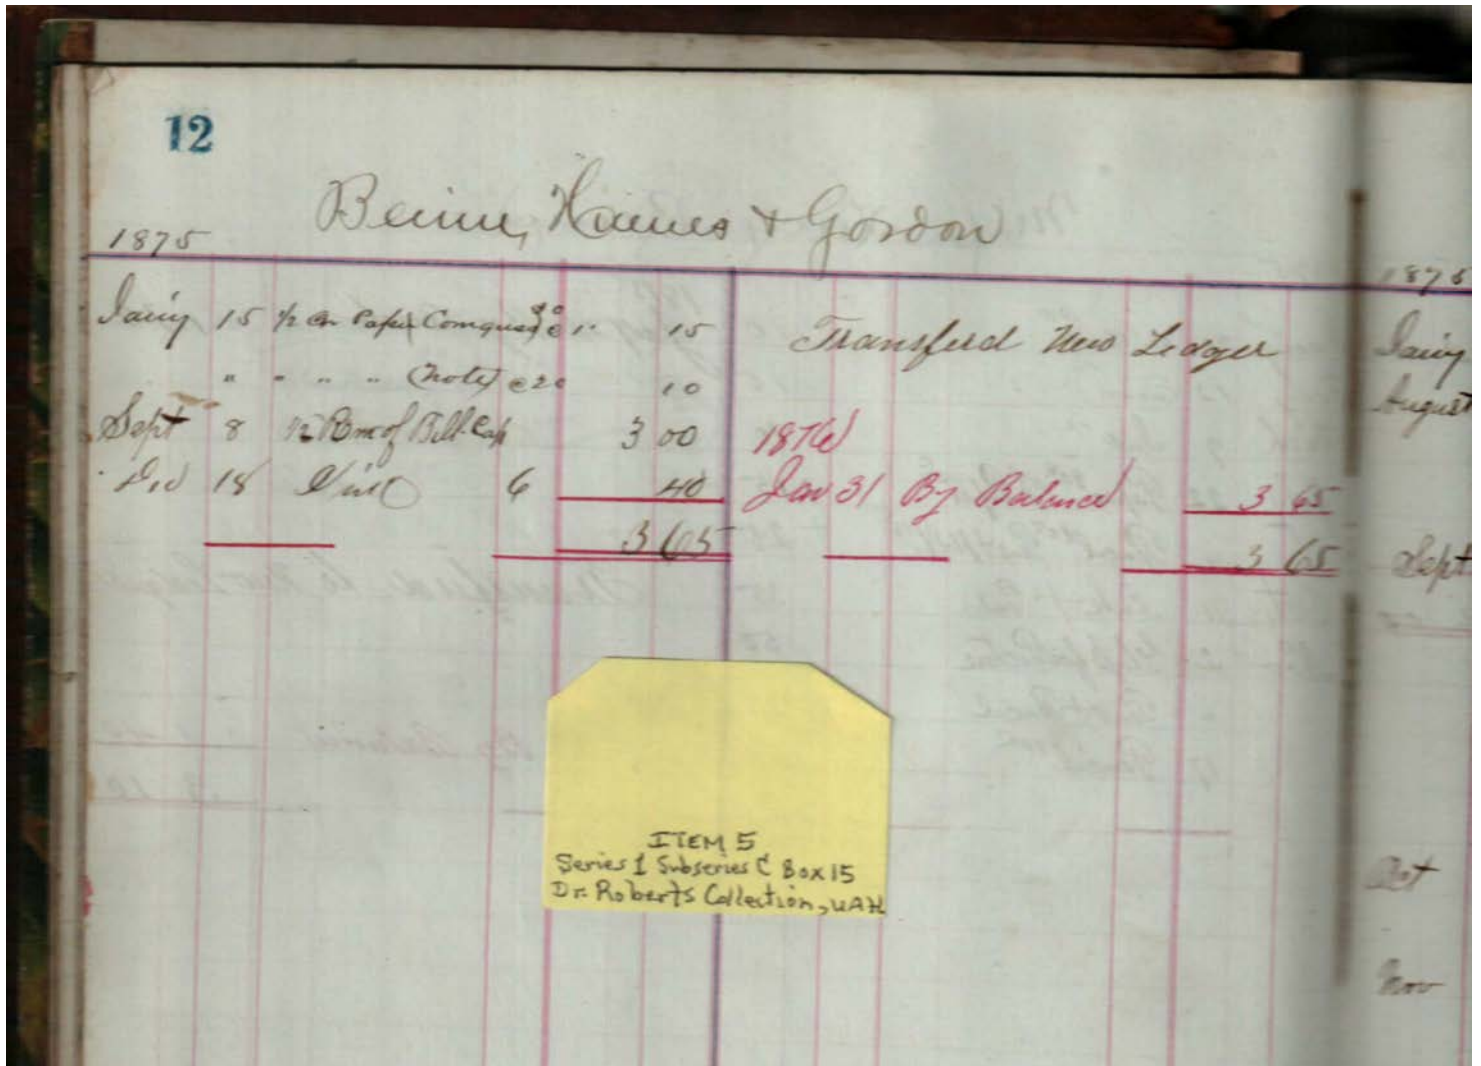 12
Beirne, Haines & Gordon
1875
Jany 15 1/2 Qr Paper 15
" " " " (Note) @ 20 10
Sept 8 1/2 Rm of Bill Cap 3 00
Dec 18 6 40
3 65
Transferd New Ledger
1876
Jan 31 By Balance 3 65
3 65
1875
Jany
August
Sept
Oct
Nov
ITEM 5
Series 1 Subseries C Box 15
Dr. Roberts Collection, UAH